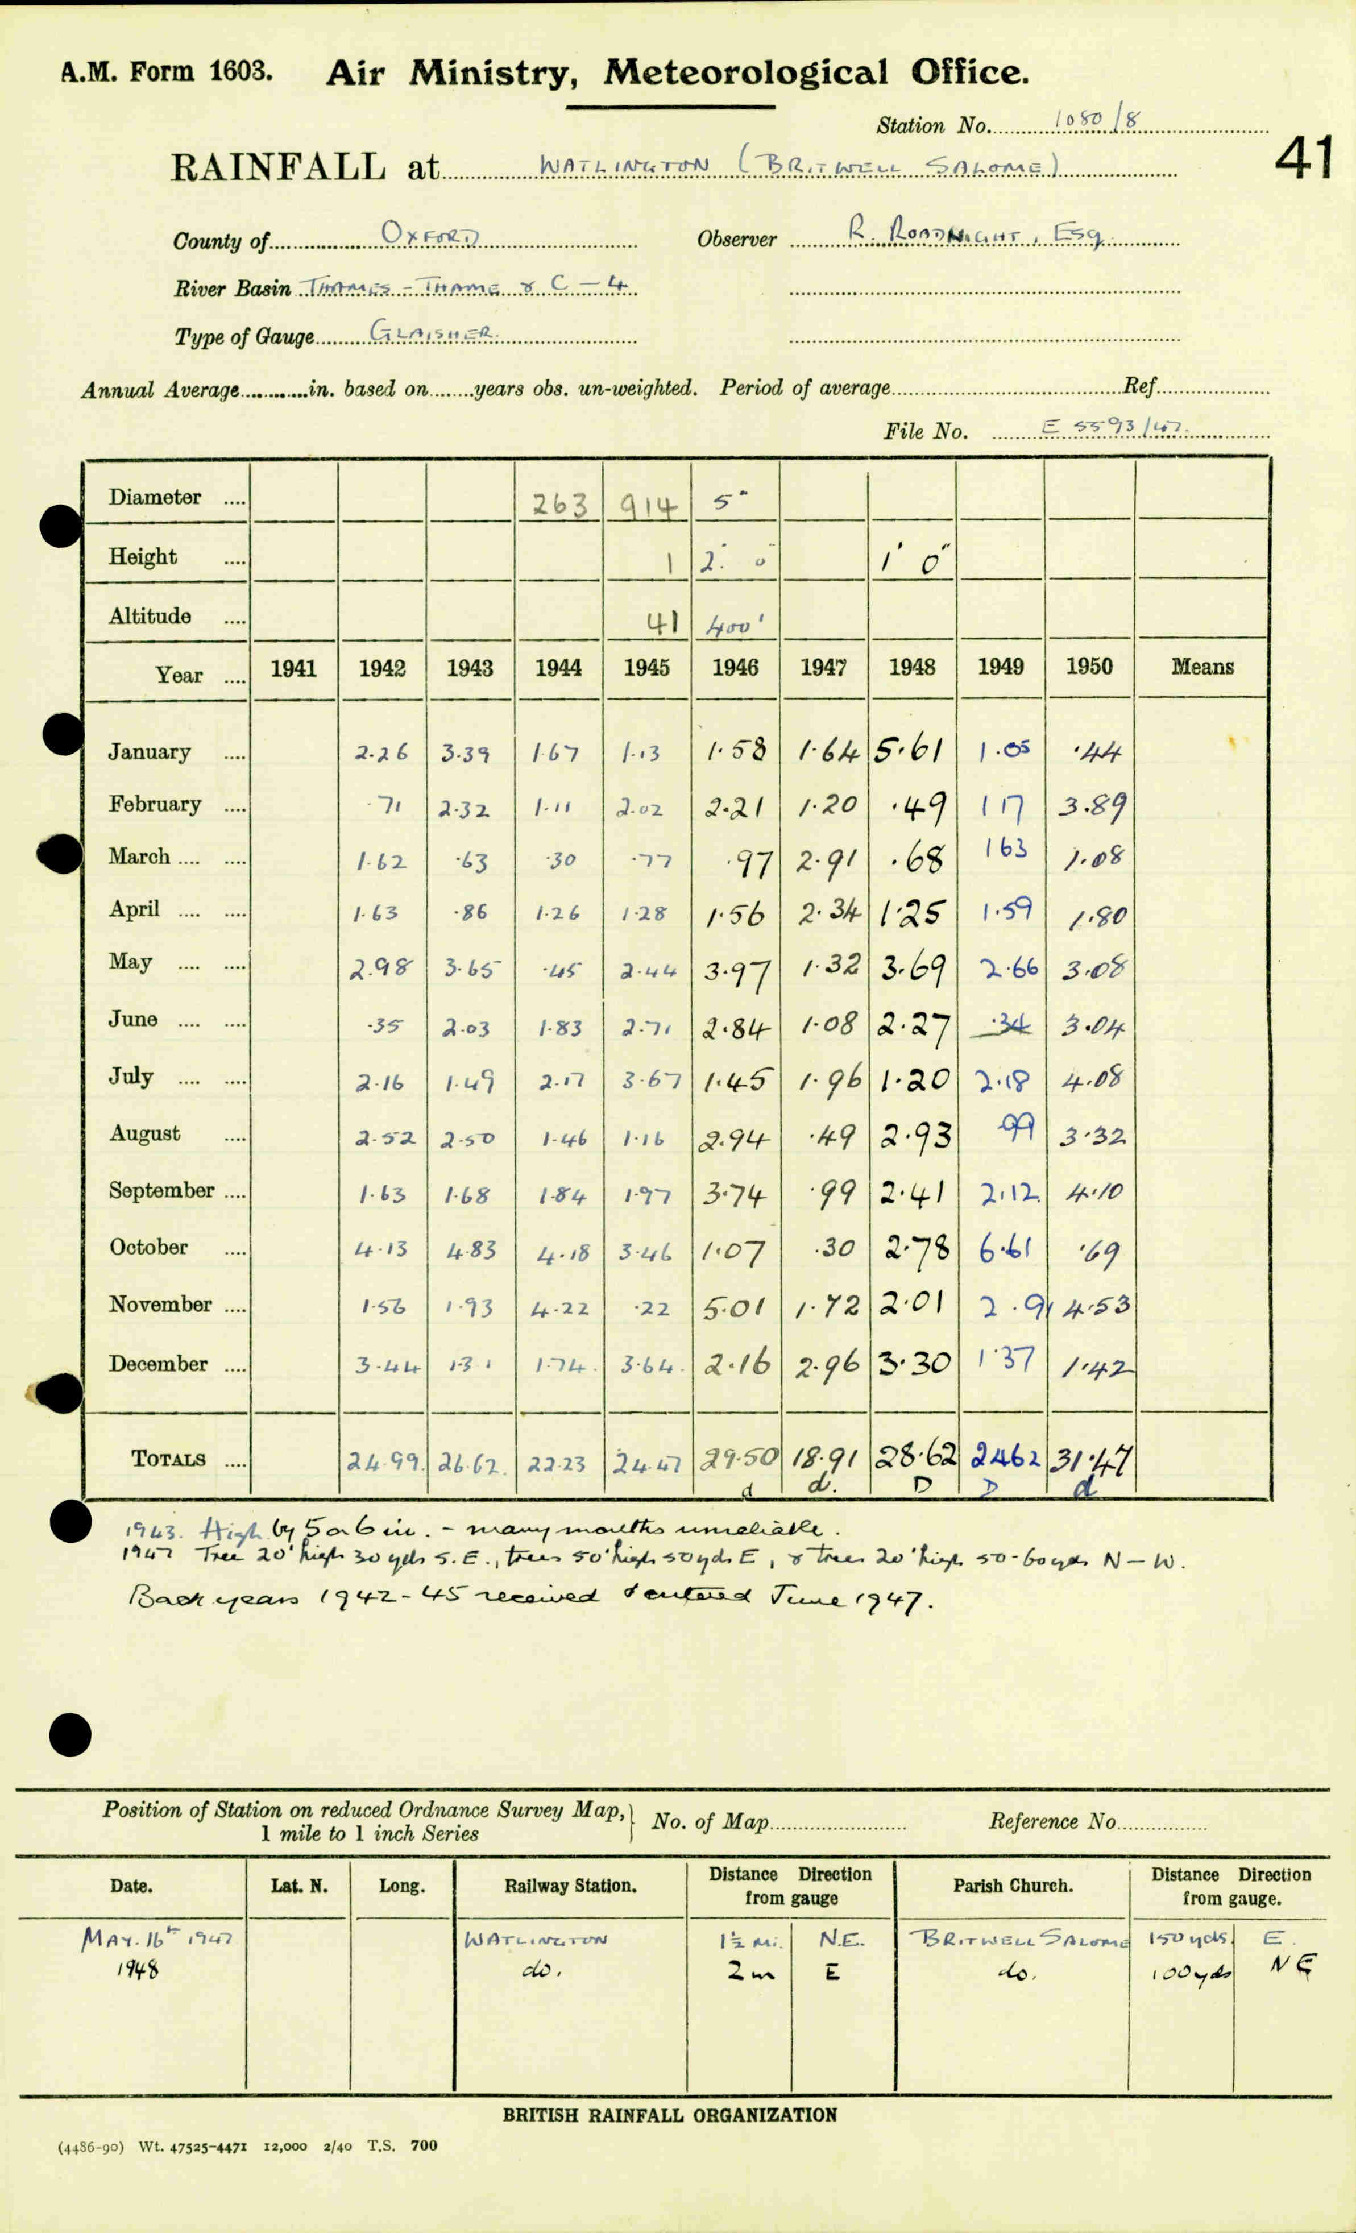 A.M. Form 1603. Air Ministry, Meteorological Office.
Station No. 1080/8
RAINFALL at WATLINGTON (BRITWELL SALOME) 41
County of OXFORD Observer R. ROADNIGHT, ESQ.
River Basin THAMES – THAME & C – 4
Type of Gauge GLAISHER.
Annual Average............in. based on........years obs. un-weighted. Period of average........Ref........
File No. E 5593/47.
Diameter .... 263 914 5"
Height .... 1 2' 0" 1' 0"
Altitude .... 41 400'
Year .... 1941 1942 1943 1944 1945 1946 1947 1948 1949 1950 Means
January .... 2.26 3.39 1.67 1.13 1.58 1.64 5.61 1.05 .44
February .... .71 2.32 1.11 2.02 2.21 1.20 .49 1 17 3.89
March .... .... 1.62 .63 .30 .77 .97 2.91 .68 1 63 1.08
April .... .... 1.63 .86 1.26 1.28 1.56 2.34 1.25 1.59 1.80
May .... .... 2.98 3.65 .45 2.44 3.97 1.32 3.69 2.66 3.08
June .... .... .35 2.03 1.83 2.71 2.84 1.08 2.27 .34 3.04
July .... .... 2.16 1.49 2.17 3.67 1.45 1.96 1.20 2.18 4.08
August .... 2.52 2.50 1.46 1.16 2.94 .49 2.93 .99 3.32
September .... 1.63 1.68 1.84 1.97 3.74 .99 2.41 2.12 4.10
October .... 4.13 4.83 4.18 3.46 1.07 .30 2.78 6.61 .69
November .... 1.56 1.93 4.22 .22 5.01 1.72 2.01 2.91 4.53
December .... 3.44 1.31 1.74 3.64 2.16 2.96 3.30 1.37 1.42
TOTALS .... 24.99 26.62 22.23 24.47 29.50 18.91 28.62 24 62 31.47
d d. D D d
1943. High by 5 or 6 in. – many months unreliable.
1947 Tree 20' high 30 yds S.E., trees 50' high 50 yds E, & trees 20' high 50-60 yds N – W.
Back years 1942-45 received & entered June 1947.
Position of Station on reduced Ordnance Survey Map, 1 mile to 1 inch Series No. of Map........ Reference No........
Date. Lat. N. Long. Railway Station. Distance Direction from gauge Parish Church. Distance Direction from gauge.
MAY. 16th 1947 WATLINGTON 1½ mi. N.E. BRITWELL SALOME 150 yds. E.
1948 do. 2 m E do. 100 yds NE
BRITISH RAINFALL ORGANIZATION
(4486-90) Wt. 47525-4471 12,000 2/40 T.S. 700